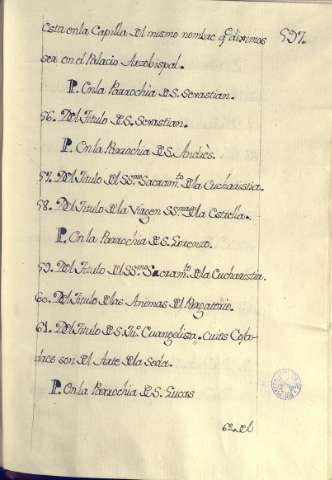 Esta en la Capilla del mismo nombre qe diximos
537.
ser en el Palacio Arzobispal.
P. En la Parrochia de S. Sevastian.
56. Del Titulo de S. Sevastian.
P. En la Parrochia de S. Andrès.
57. Del Titulo del SSmo Sacramto de la Eucharistia.
58. Del Titulo de la Virgen SSma de la Estrella.
P. En la Parrochia de S. Lorenzo.
59. Del Titulo del SSmo Sacramto de la Eucharistia.
60. Del Titulo de las Animas del Purgatorio.
61. Del Titulo de S. Jn. Evangelista. cuios Cofa-
drace son del Arte de la Seda.
P. En la Parrochia de S. Lucas
62. del